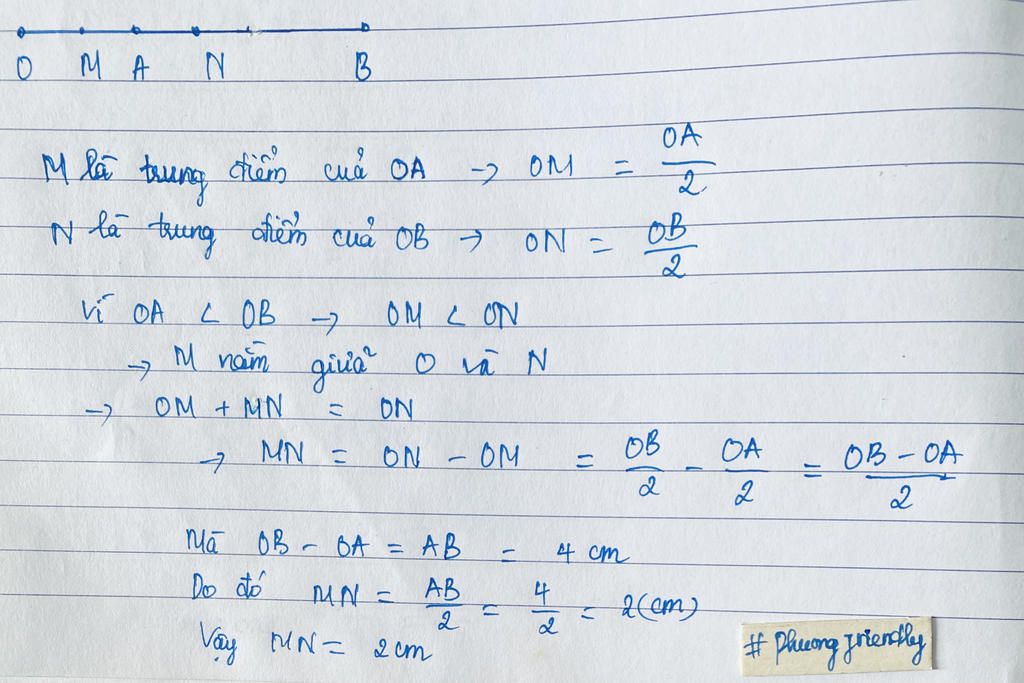 O M A N B
M là trung điểm của OA → OM = OA/2
N là trung điểm của OB → ON = OB/2
Vì OA < OB → OM < ON
→ M nằm giữa O và N
→ OM + MN = ON
→ MN = ON - OM = OB/2 - OA/2 = OB - OA/2
Mà OB - OA = AB = 4 cm
Do đó MN = AB/2 = 4/2 = 2(cm)
Vậy MN = 2cm
# Phuong friendly